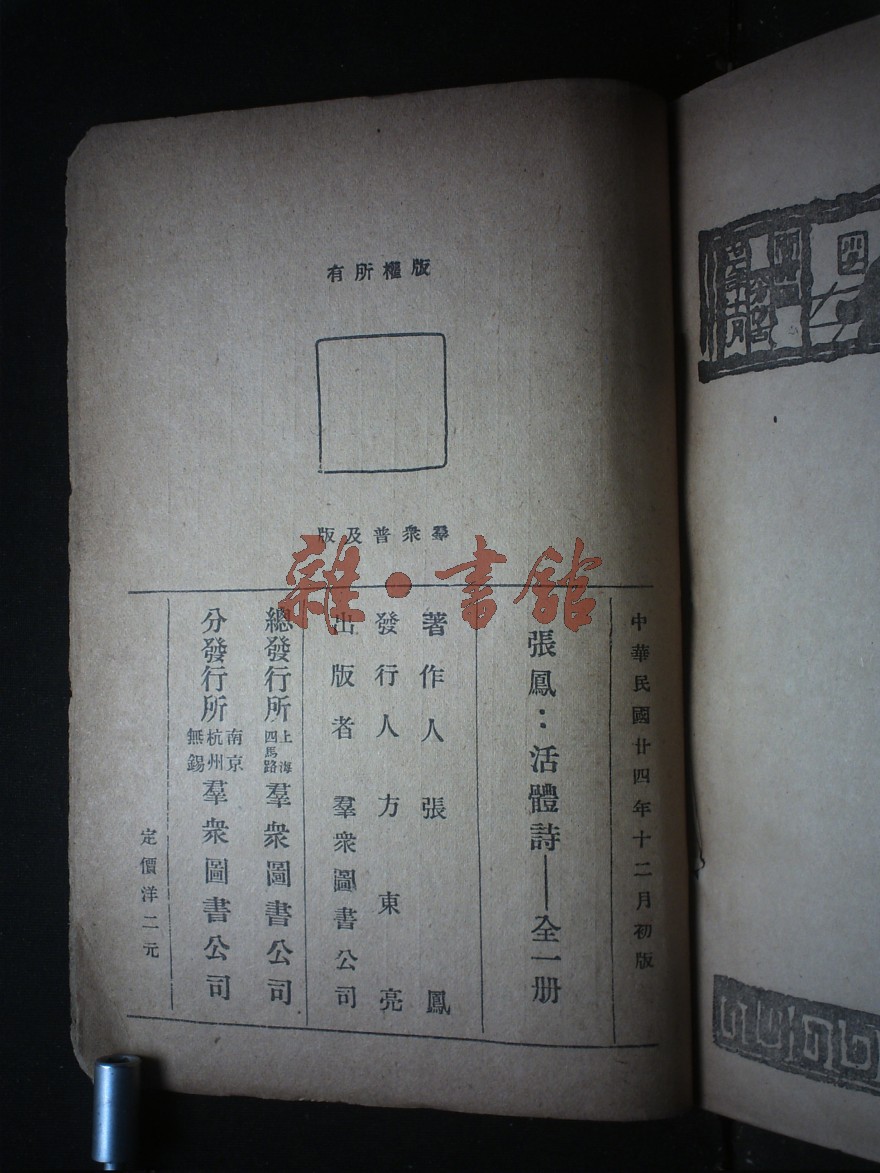 版權所有
羣衆普及版
雜·書館
中華民國廿四年十二月初版
張鳳：活體詩——全一册
著作人 張鳳
發行人 方東亮
出版者 羣衆圖書公司
總發行所 上海四馬路 羣衆圖書公司
分發行所 南京 杭州 無錫 羣衆圖書公司
定價洋二元